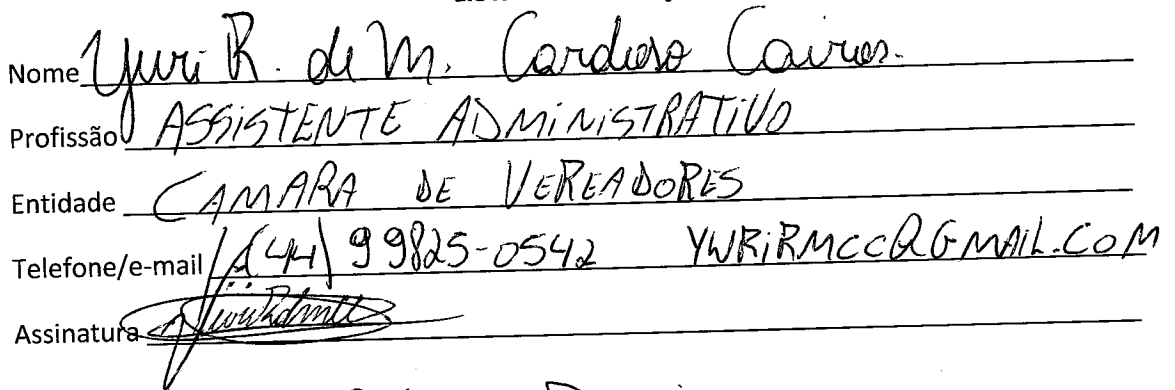 Nome Ywri R. de M. Cardoso Caires.
Profissão ASSISTENTE ADMINISTRATIVO
Entidade CAMARA DE VEREADORES
Telefone/e-mail (44) 99825-0542 YWRIRMCC@GMAIL.COM
Assinatura